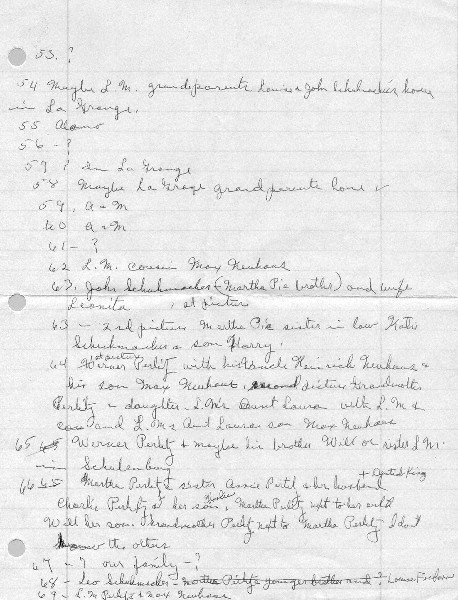 53. ?
54 Maybe L.M. grandparents Louise & John Schuhmacher's house
in La Grange.
55 Alamo
56 - ?
57 ? In La Grange
58 Maybe La Grange grandparents home
59. A & M
60 A & M
61 - ?
62 L.M. cousin Max Neuhaus
63. John Schuhmacher (Martha Pic brother) and wife
Leonita, 1st picture
63 - 2nd picture Martha Pic sister in law Katie
Schuhmacher & son Harry.
64 1st picture Werner Perlitz with his Uncle Heinrich Neuhaus &
his son Max Neuhaus, second picture Grandmother
Perlitz & daughter - L.M's Aunt Laura with L.M &
and L.M's Aunt Laura son Max Neuhaus
65 Werner Perlitz & maybe his brother Will or sister L.M.
in Schulenburg
66 Martha Perlitz sister Annie Perlitz & her husband
Charlie Perlitz & her son, Martha Perlitz next to her with
Will her son. Grandmother Perlitz next to Martha Perlitz I don't
know the others
67 - ? our family - ?
68 - Leo Schuhmacher - Martha Perlitz's younger brother and ? Louise
69 - L.M Perlitz & Max Neuhaus